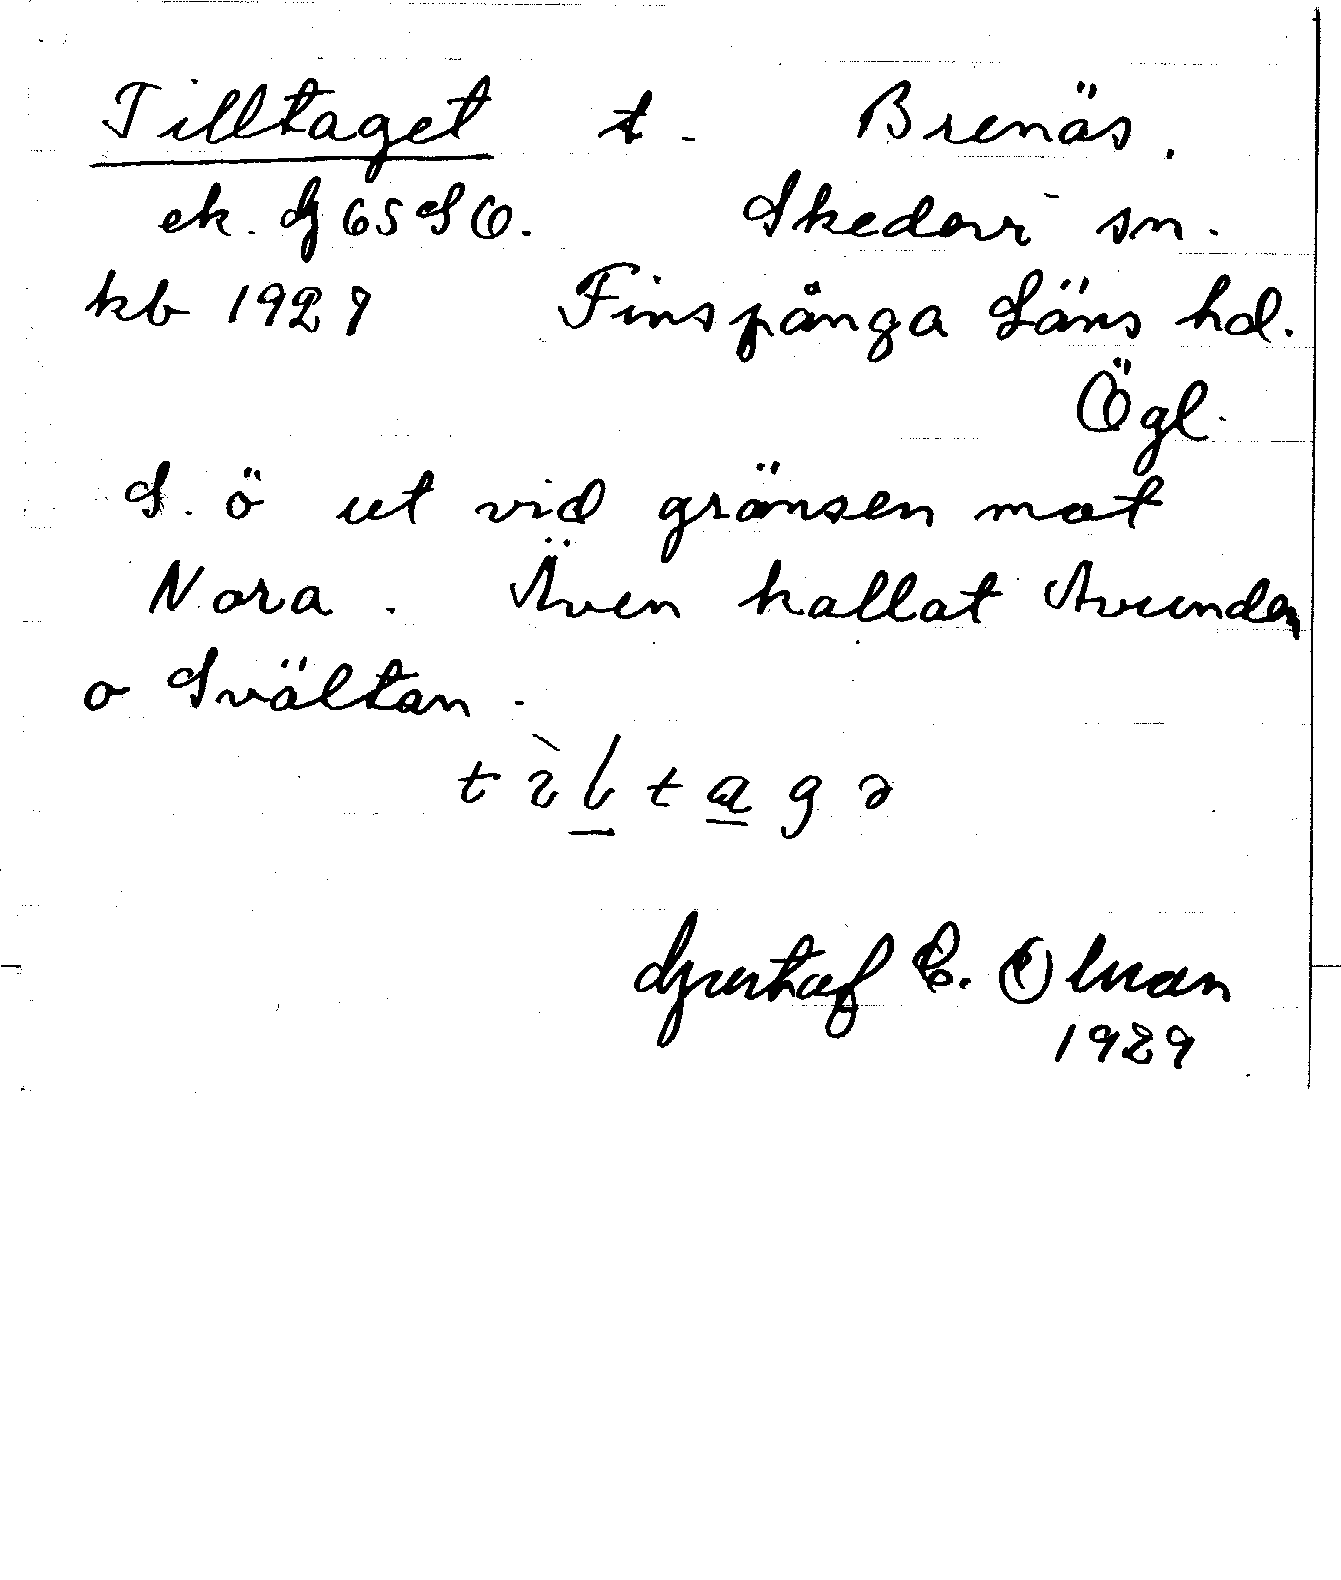 Tilltaget t. Brenäs.
ek. G 65 S O. Skedevi sn.
kb 1929 Finspånga Läns hd.
Ögl.
S. ö ut vid gränsen mot
Nora. Även kallat Avunden
o Svältan.
tìltagə
Gustaf E. Olson
1929